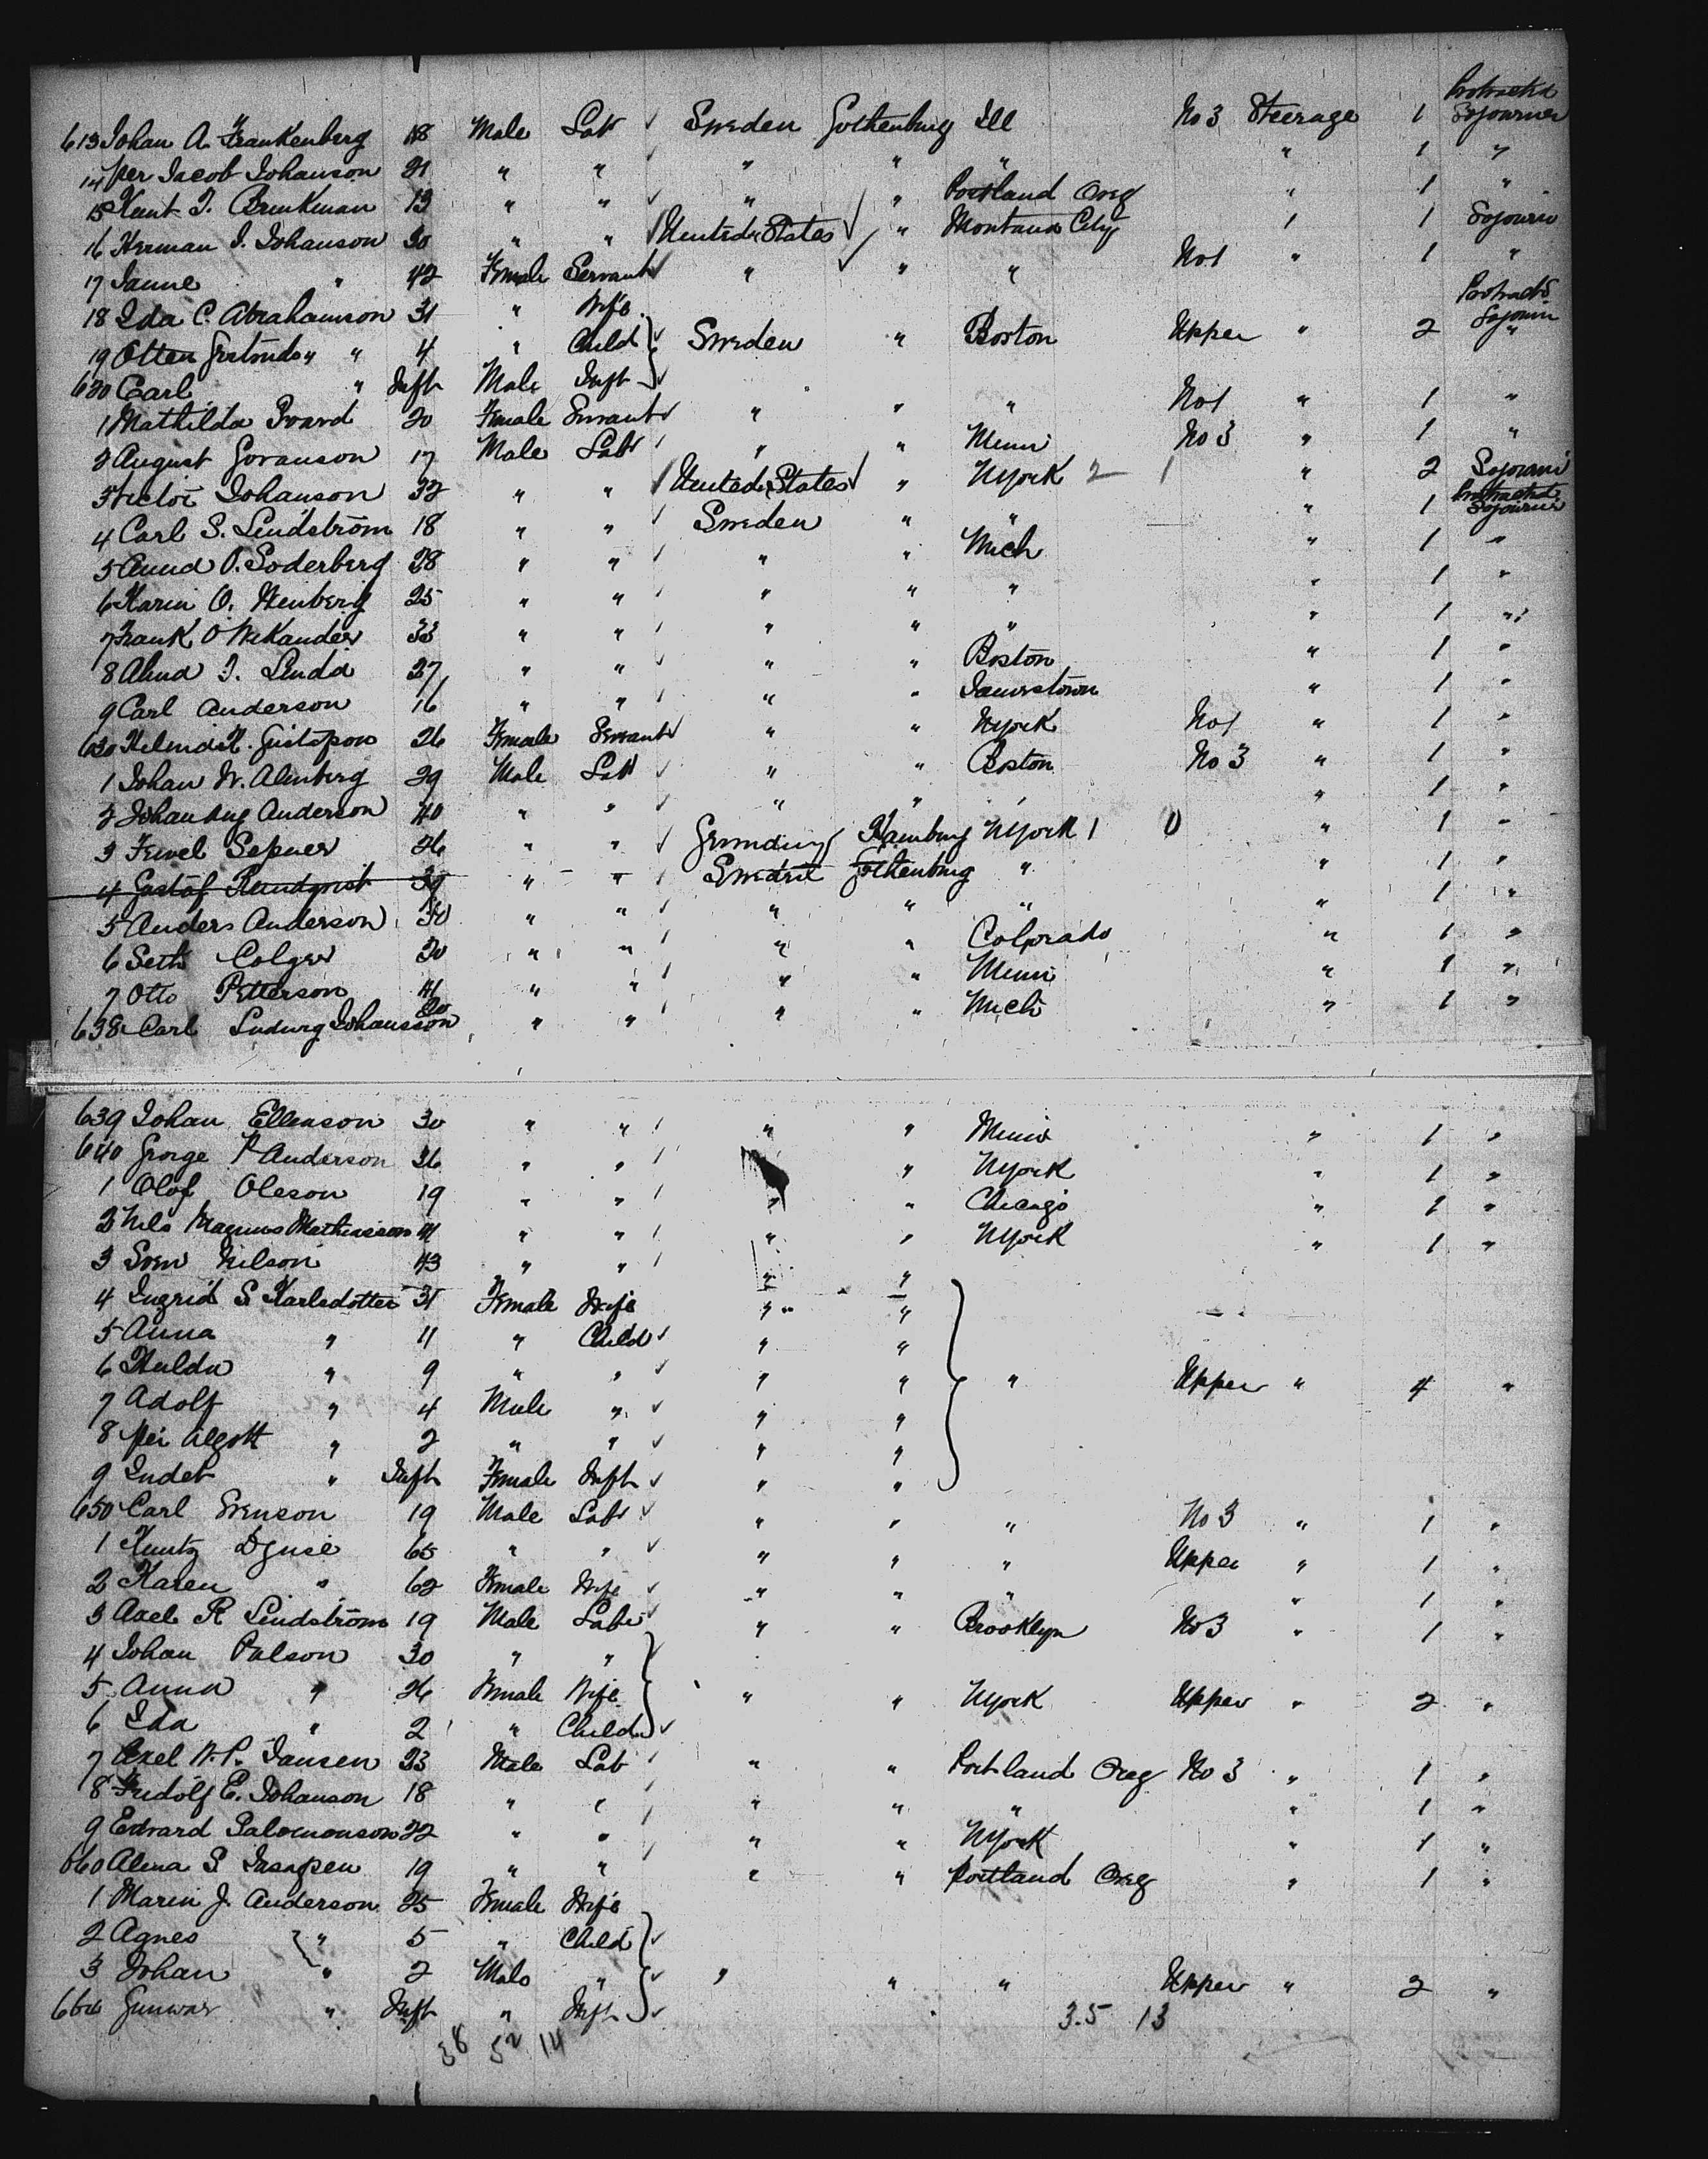 Protracted
613 Johan A. Frankenberg 18 Male Labr ✓ Sweden Gothenburg Ill No 3 Steerage 1 Sojourner
14 Per Jacob Johanson 21 " " ✓ " " " " 1 "
15 Knut T. Brinkman 13 " " ✓ " " Portland Oreg " 1 "
16 Herman I. Johanson 30 " " ✓ United States ✓ " Montana City 1 1 Sojourn
17 Janne " 42 Female Servant ✓ " ✓ " " No 1 " 1 "
18 Ida C. Abrahamson 31 " Wife Protractd Sojourn
19 Otten Gertrude " " 4 " Child ✓ Sweden " Boston Upper " 2 "
620 Carl " Inft Male Inft ✓
1 Mathilda Svard 20 Female Servant ✓ " " " No 1 " 1 "
2 August Goranson 17 Male Labr " " Minn No 3 " 1 "
3 Victor Johanson 32 " " ✓ United States ✓ " NYork 2 1 " 2 Sojourn
4 Carl S. Lindström 18 " " ✓ Sweden " " " 1 Protracted Sojourner
5 O. Soderberg 28 " " " " Mich " 1 "
6 Karin O. 25 " " " " " " 1 "
7 Frank O Wikander 33 " " " " " " 1 "
8 J. Lindd 27 " " ✓ " " Boston " 1 "
9 Carl Anderson 16 " " " " Jamestown " 1 "
630 K. Gustafson 26 Female Servant ✓ " " NYork No 1 " 1 "
1 Johan W. Almberg 29 Male Labr ✓ " " Boston No 3 " 1 "
2 Johan Aug Anderson 40 " " ✓ " " " " 1 "
3 26 " " ✓ Hamburg NYork 1 0 " 1 "
4 Gustaf Rundqvist 39 " " Sweden Gothenburg " " 1 "
5 Anders Anderson 30 " " ✓ " " " " 1 "
6 Seth Colger 20 " " " " Colorado " 1 "
7 Otto Petterson 41 " " " " Minn " 1 "
638 Carl Ludwig Johansson 20 " " " " Mich " 1 "
639 Johan Ellenson 30 " " " " Minn " 1 "
640 George P Anderson 26 " " " NYork " 1 "
1 Olof Oleson 19 " " " " Chicago " 1 "
2 Nils Magnus Mathiasson 41 " " " " NYork " 1 "
3 Sven Nilson 43 " " " "
4 Ingrid S. Karlsdotter 31 Female Wife " "
5 Anna " 11 " Child ✓ " "
6 Hulda " 9 " " ✓ " " " Upper " 4 "
7 Adolf " 4 Male " ✓ " "
8 Per Algott " 2 " " ✓ " "
9 " Inft Female Inft ✓ " "
650 Carl Svenson 19 Male Labr ✓ " " " No 3 " 1 "
1 65 " " ✓ " " " Upper " 1 "
2 Karen " 62 Female Wife ✓ " " " " 1 "
3 Axel R Lindström 19 Male Labr ✓ " " Brooklyn No 3 " 1 "
4 Johan Palson 30 " " ✓
5 Anna " 26 Female Wife " " NYork Upper " 2 "
6 Ida " 2 " Child ✓
7 Axel W. P. Jansen 23 Male Lab " " Portland Oreg No 3 " 1 "
8 Fridolf E. Johanson 18 " " " " " " 1 "
9 Edvard Salomonson 22 " " " " NYork " 1 "
660 Alma S. 19 " " " " Portland Oreg " 1 "
1 Maria J. Anderson 25 Female Wife
2 Agnes " 5 " Child ✓
3 Johan " 2 Male " ✓ " " " Upper " 2 "
664 Gunwar " Inft " Inft ✓
3.5 13
38 52 14